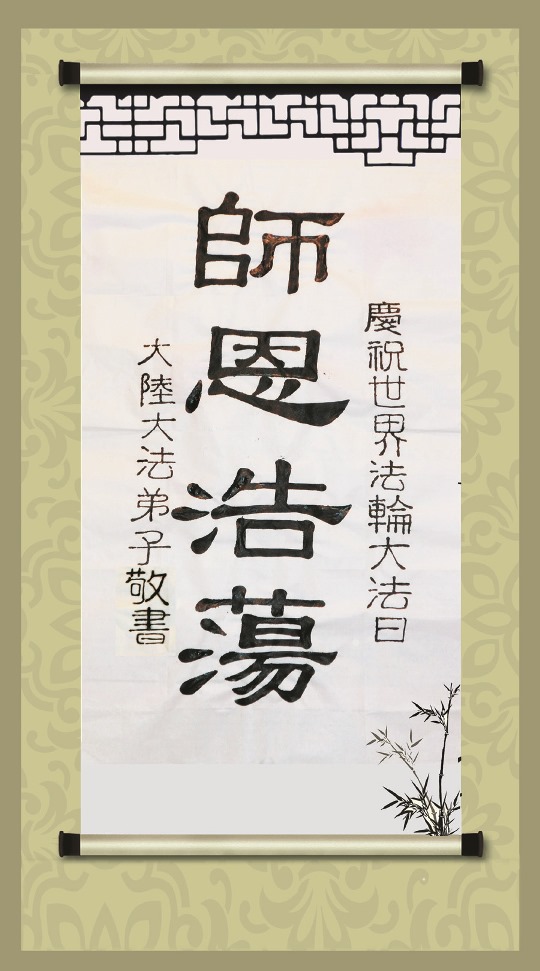 慶祝世界法輪大法日
師恩浩蕩
大陸大法弟子敬書